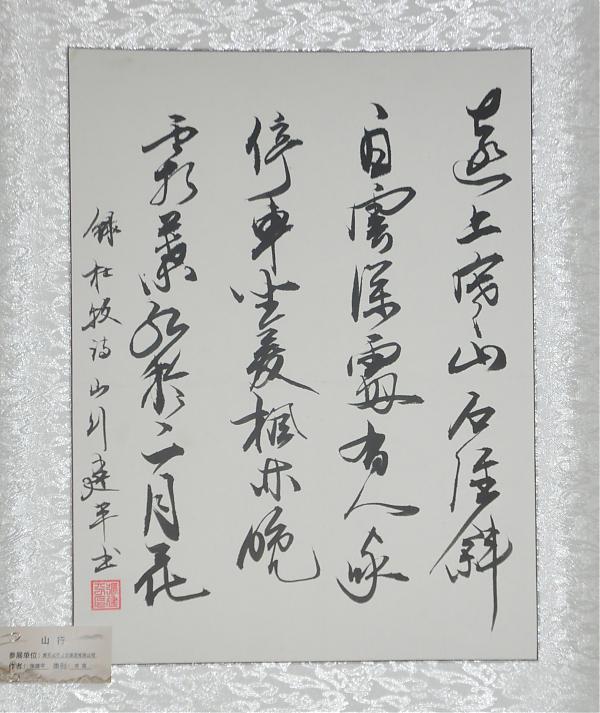 遠上寒山石徑斜
白雲深處有人家
停車坐愛楓林晚
霜葉紅於二月花
錄杜牧詩山行建平书
山行
参展单位：
作者： 类别：